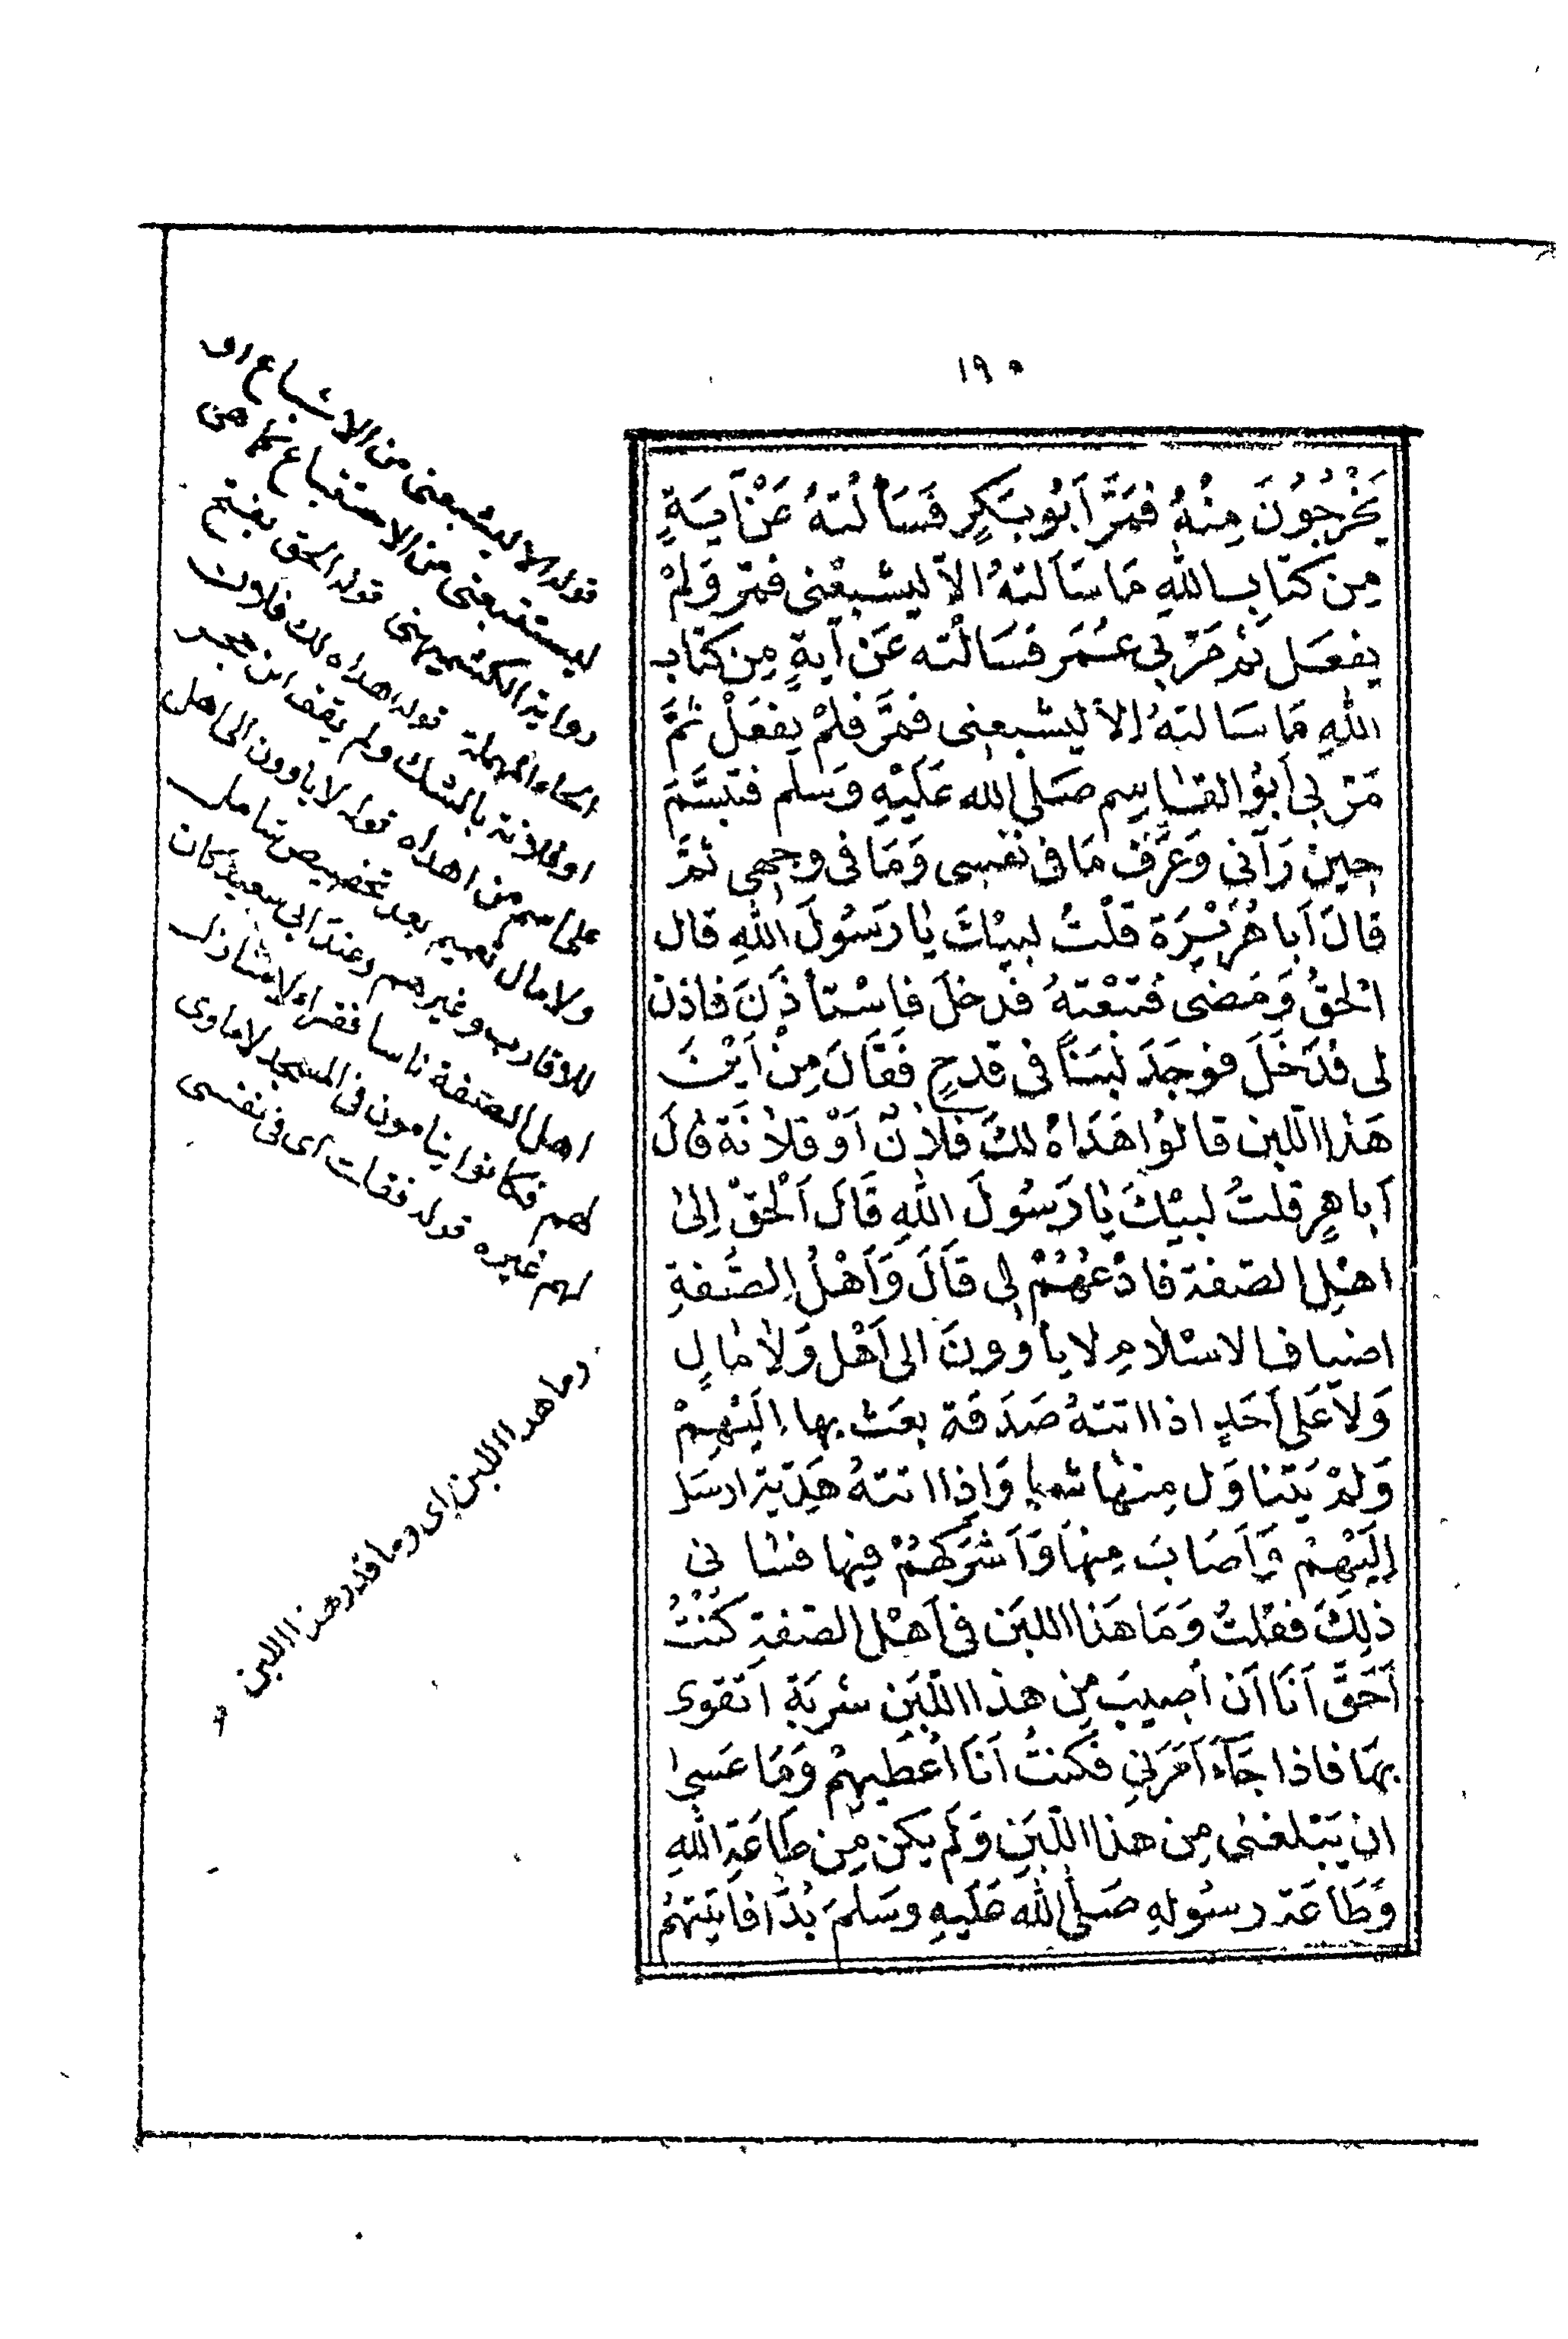 ١٩٠
يَخْرُجُونَ مِنْهُ فَمَرَّ اَبُو بَكْرٍ فَسَأَلْتهُ عَنْ آيَةٍ
مِن كتَابِ اللهِ مَا سَاَلتهُ الاّ ليشبعْنى فمرّ وَلمْ
يفعَل ثم مَرّ بى عُمَر فسَالْته عَن آيةٍ مِن كتاب
اللهِ مَا سَالتهُ الاّ ليشبعنى فمرَّ فلمْ يفعَلْ ثُمَّ
مَرّ بى اَبُو القاسِم صَلى الله عَلَيْهِ وَسَلم فتبسَّمَ
حِين رَآنى وَعَرَفَ مَا فى نفسِى وَمَا فى وجهِى ثمَّ
قالَ اَبا هُرَيْرَة قلْتُ لبيْكَ يَا رَسُولَ اللهِ قال
الحقْ وَمَضى فتبعْتهُ فدَخلَ فاسْتأذَنَ فاذن
لى فدَخَلَ فوجَدَ لبَناً فى قدحٍ فَقَالَ مِنْ اَيْنَ
هَذا اللّبن قالوُا هَدَاهُ لكَ فلانٌ اَوْ فلانَة قالَ
اَبا هِرٍ قلتُ لبيْكَ يَا رَسُولَ اللهِ قَالَ اَلْحقْ اِلىٰ
اهْلِ الصّفة فادْعُهُمْ لى قاَلَ وَاَهْلُ الصُّفةِ
اضياف الاسْلامِ لا ياوونَ الى اَهْل وَلاَ مَالٍ
وَلاَ عَلى اَحَدٍ اذا اتتهُ صَدَقة بعَث بها اِلَيْهِمْ
وَلمْ يَتناوَل مِنهَا شيا وَاِذا اتتهُ هَدّية ارسَل
اِلَيْهِمْ وَاَصَابَ مِنهاَ وَاَشْرَكهُمْ فيها فسَانى
ذلِكَ فقلتُ وَمَا هَذا اللبَن فى اَهْل الصّفةِ كُنْتُ
اَحَقّ اَنَا اَن اُصِيبَ مِن هذا اللّبَن شربَة اتقوى
بهَا فاذا جَآءَ اَمَرَنِي فَكنتُ اَنَا اُعْطِيهِمْ وَمَا عَسىٰ
ان يَبْلغنى مِن هذا اللّبَنِ وَلم يكن مِن طاعَةِ اللهِ
وَطَاعَة رسُولهِ صَلى الله عَلَيهِ وسَلمَ بُدّ فاَتيتهُم
قوله الا ليشبعنى من الاشباع او
ليستتبعنى من الاستتباع كما هى
رواية الكشميهنى قوله الحق بفتح
الحاء المهملة قوله اهداه لك فلان
او فلانة بالشك ولم يقف ابن حجر
على اسم من اهداه قوله لا ياوون الى اهل
ولا مال تعميم بعد تخصيص شامل
للاقارب وغيرهم وعند ابى سعيد كان
اهل الصفة ناسا فقراء لا منازل
لهم فكانوا ينامون فى المسجد لا ماوى
لهم غيره قوله فقلت اى فى نفسى
وما هذا اللبن اى وما قدر هذا اللبن